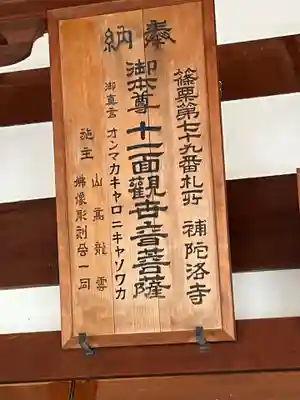 奉納
篠栗第七十九番札所 補陀洛寺
御本尊 十一面観世音菩薩
御真言 オンマカキャロニキャソワカ
施主 山髙龍雲
佛像彫刻会一同